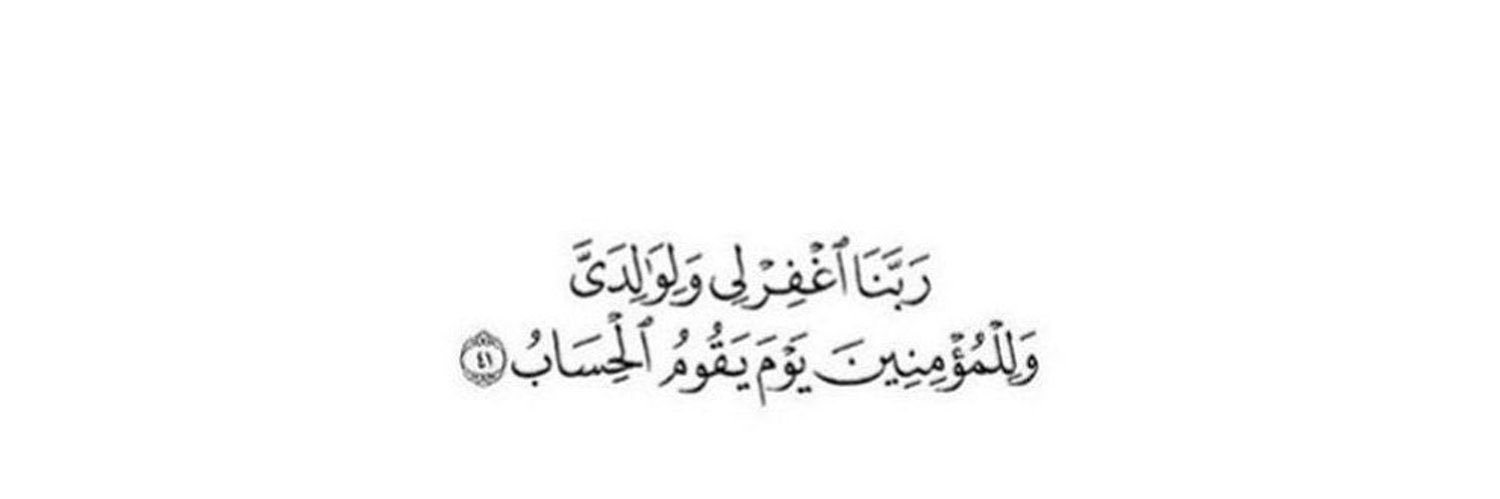 رَبَّنَا ٱغْفِرْ لِى وَلِوَٰلِدَىَّ
وَلِلْمُؤْمِنِينَ يَوْمَ يَقُومُ ٱلْحِسَابُ ٤١